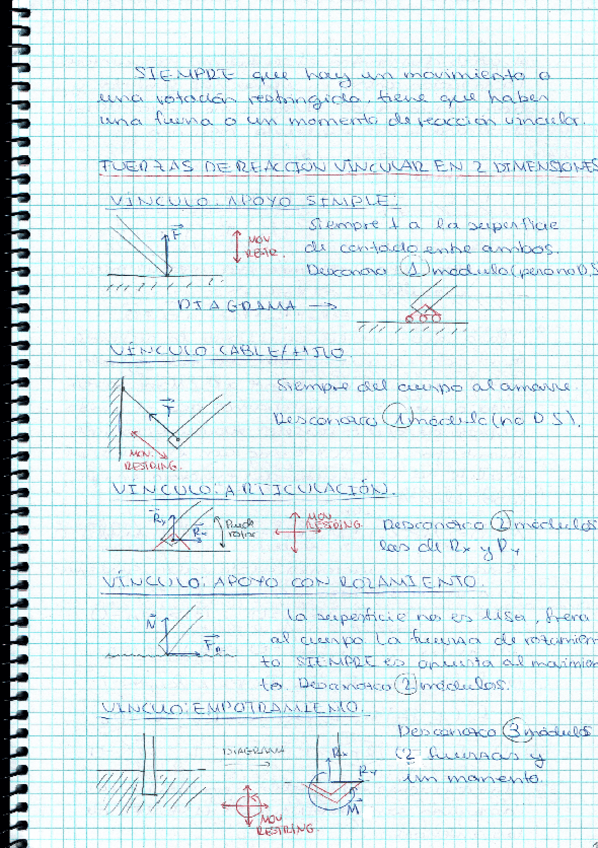 SIEMPRE que hay un movimiento o
una rotación restringida, tiene que haber
una fuerza o un momento de reacción vincular.
FUERZAS DE REACCION VINCULAR EN 2 DIMENSIONES
VÍNCULO: APOYO SIMPLE:
F
MOV RESTR.
Siempre ⊥ a la superficie
de contacto entre ambos.
Desconozco 1 módulo (pero no D, S)
DIAGRAMA →
VÍNCULO CABLE/HILO.
T
MOV. RESTRING.
Siempre del cuerpo al amarre.
Desconozco 1 módulo (no D S).
VÍNCULO: ARTICULACIÓN.
Ry
Rx
Puede rotar
MOV RESTRING.
Desconozco 2 módulos
los de Rx y Ry
VÍNCULO: APOYO CON ROZAMIENTO.
N
FR
La superficie no es lisa, frena
al cuerpo. La fuerza de rozamien
to SIEMPRE es opuesta al movimien
to. Desconozco 2 módulos.
VINCULO: EMPOTRAMIENTO.
DIAGRAMA
M
MOV RESTRING
Desconozco 3 módulos
(2 fuerzas y
un momento.